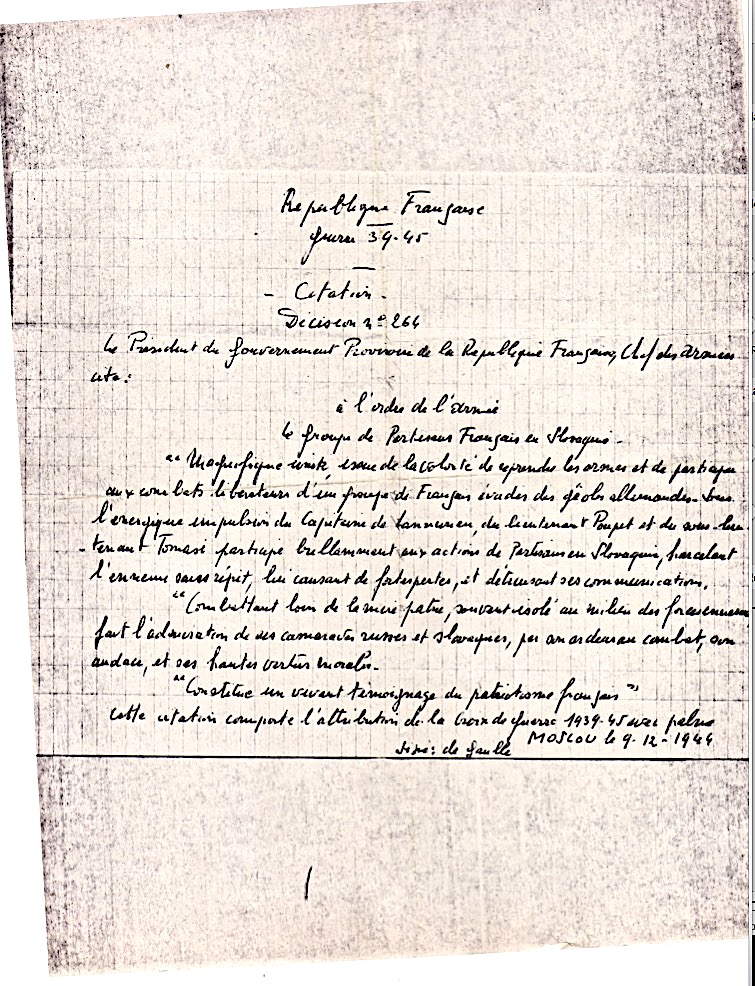 Republique Française
Guerre 39-45
- Citation -
Décision nº 264
Le Président du Gouvernement Provisoire de la Republique Française, Chef des Armées
cite:
à l'ordre de l'Armée
Le Groupe de Partisans Français en Slovaquie -
"Magnifique unité, issue de la volonté de reprendre les armes et de participer
aux combats libérateurs d'un groupe de Français évadés des geôles allemandes - Sous
l'energique impulsion du Capitaine de Lannurien, du lieutenant Poupet et du sous-lieu
-tenant Tomasi participe brillamment aux actions de Partisans en Slovaquie, harcelant
l'ennemi sans répit, lui causant de fortes pertes, et détruisant ses communications.
"Combattant loin de la mère patrie, souvent isolé au milieu des forces ennemies
fait l'admiration de ses camarades russes et slovaques, par son ardeur au combat, son
audace, et ses hautes vertus morales -
"Constitue un vivant témoignage du patriotisme français"
Cette citation comporte l'attribution de la Croix de Guerre 1939-45 avec palme
MOSCOU le 9-12-1944
Signé: de Gaulle